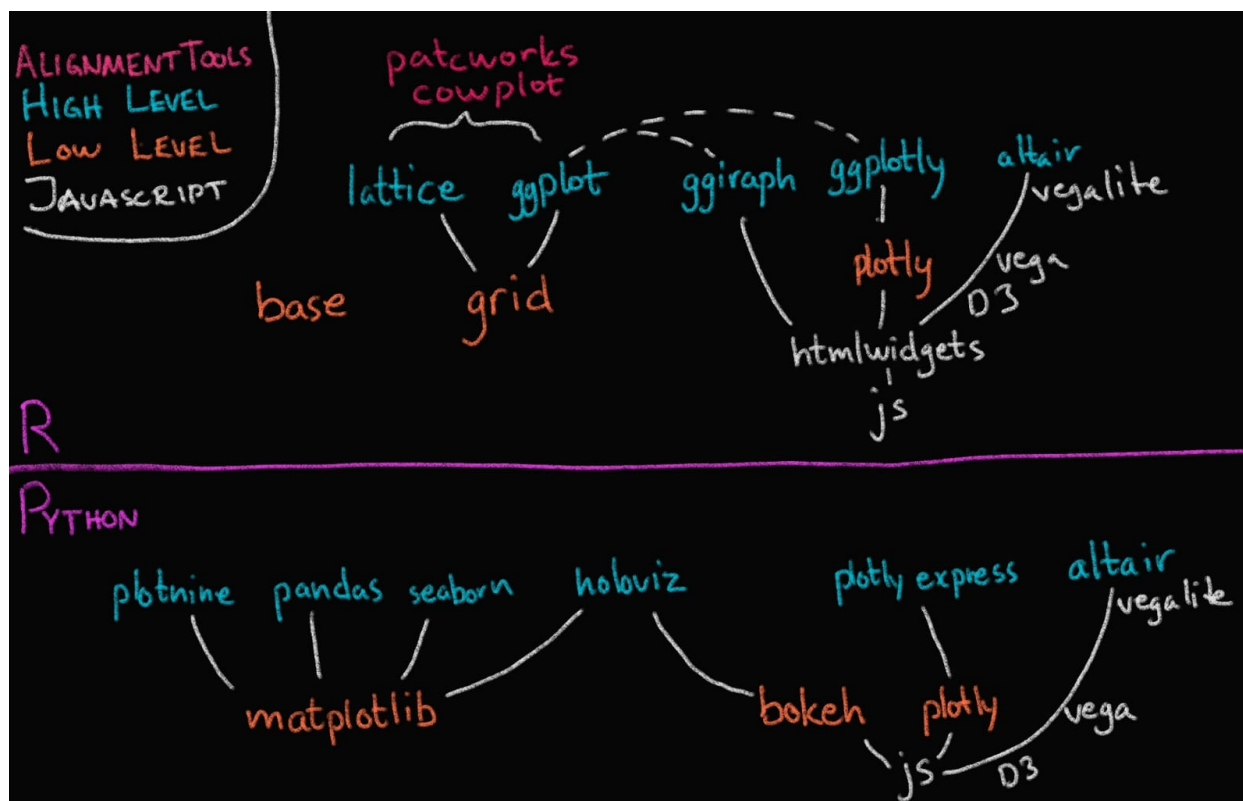 ALIGNMENT TOOLS
HIGH LEVEL
LOW LEVEL
JAVASCRIPT
patcworks
cowplot
lattice ggplot ggiraph ggplotly altair
vegalite
base grid plotly vega
D3
htmlwidgets
js
R
PYTHON
plotnine pandas seaborn holoviz plotly express altair
vegalite
matplotlib bokeh plotly vega
js D3